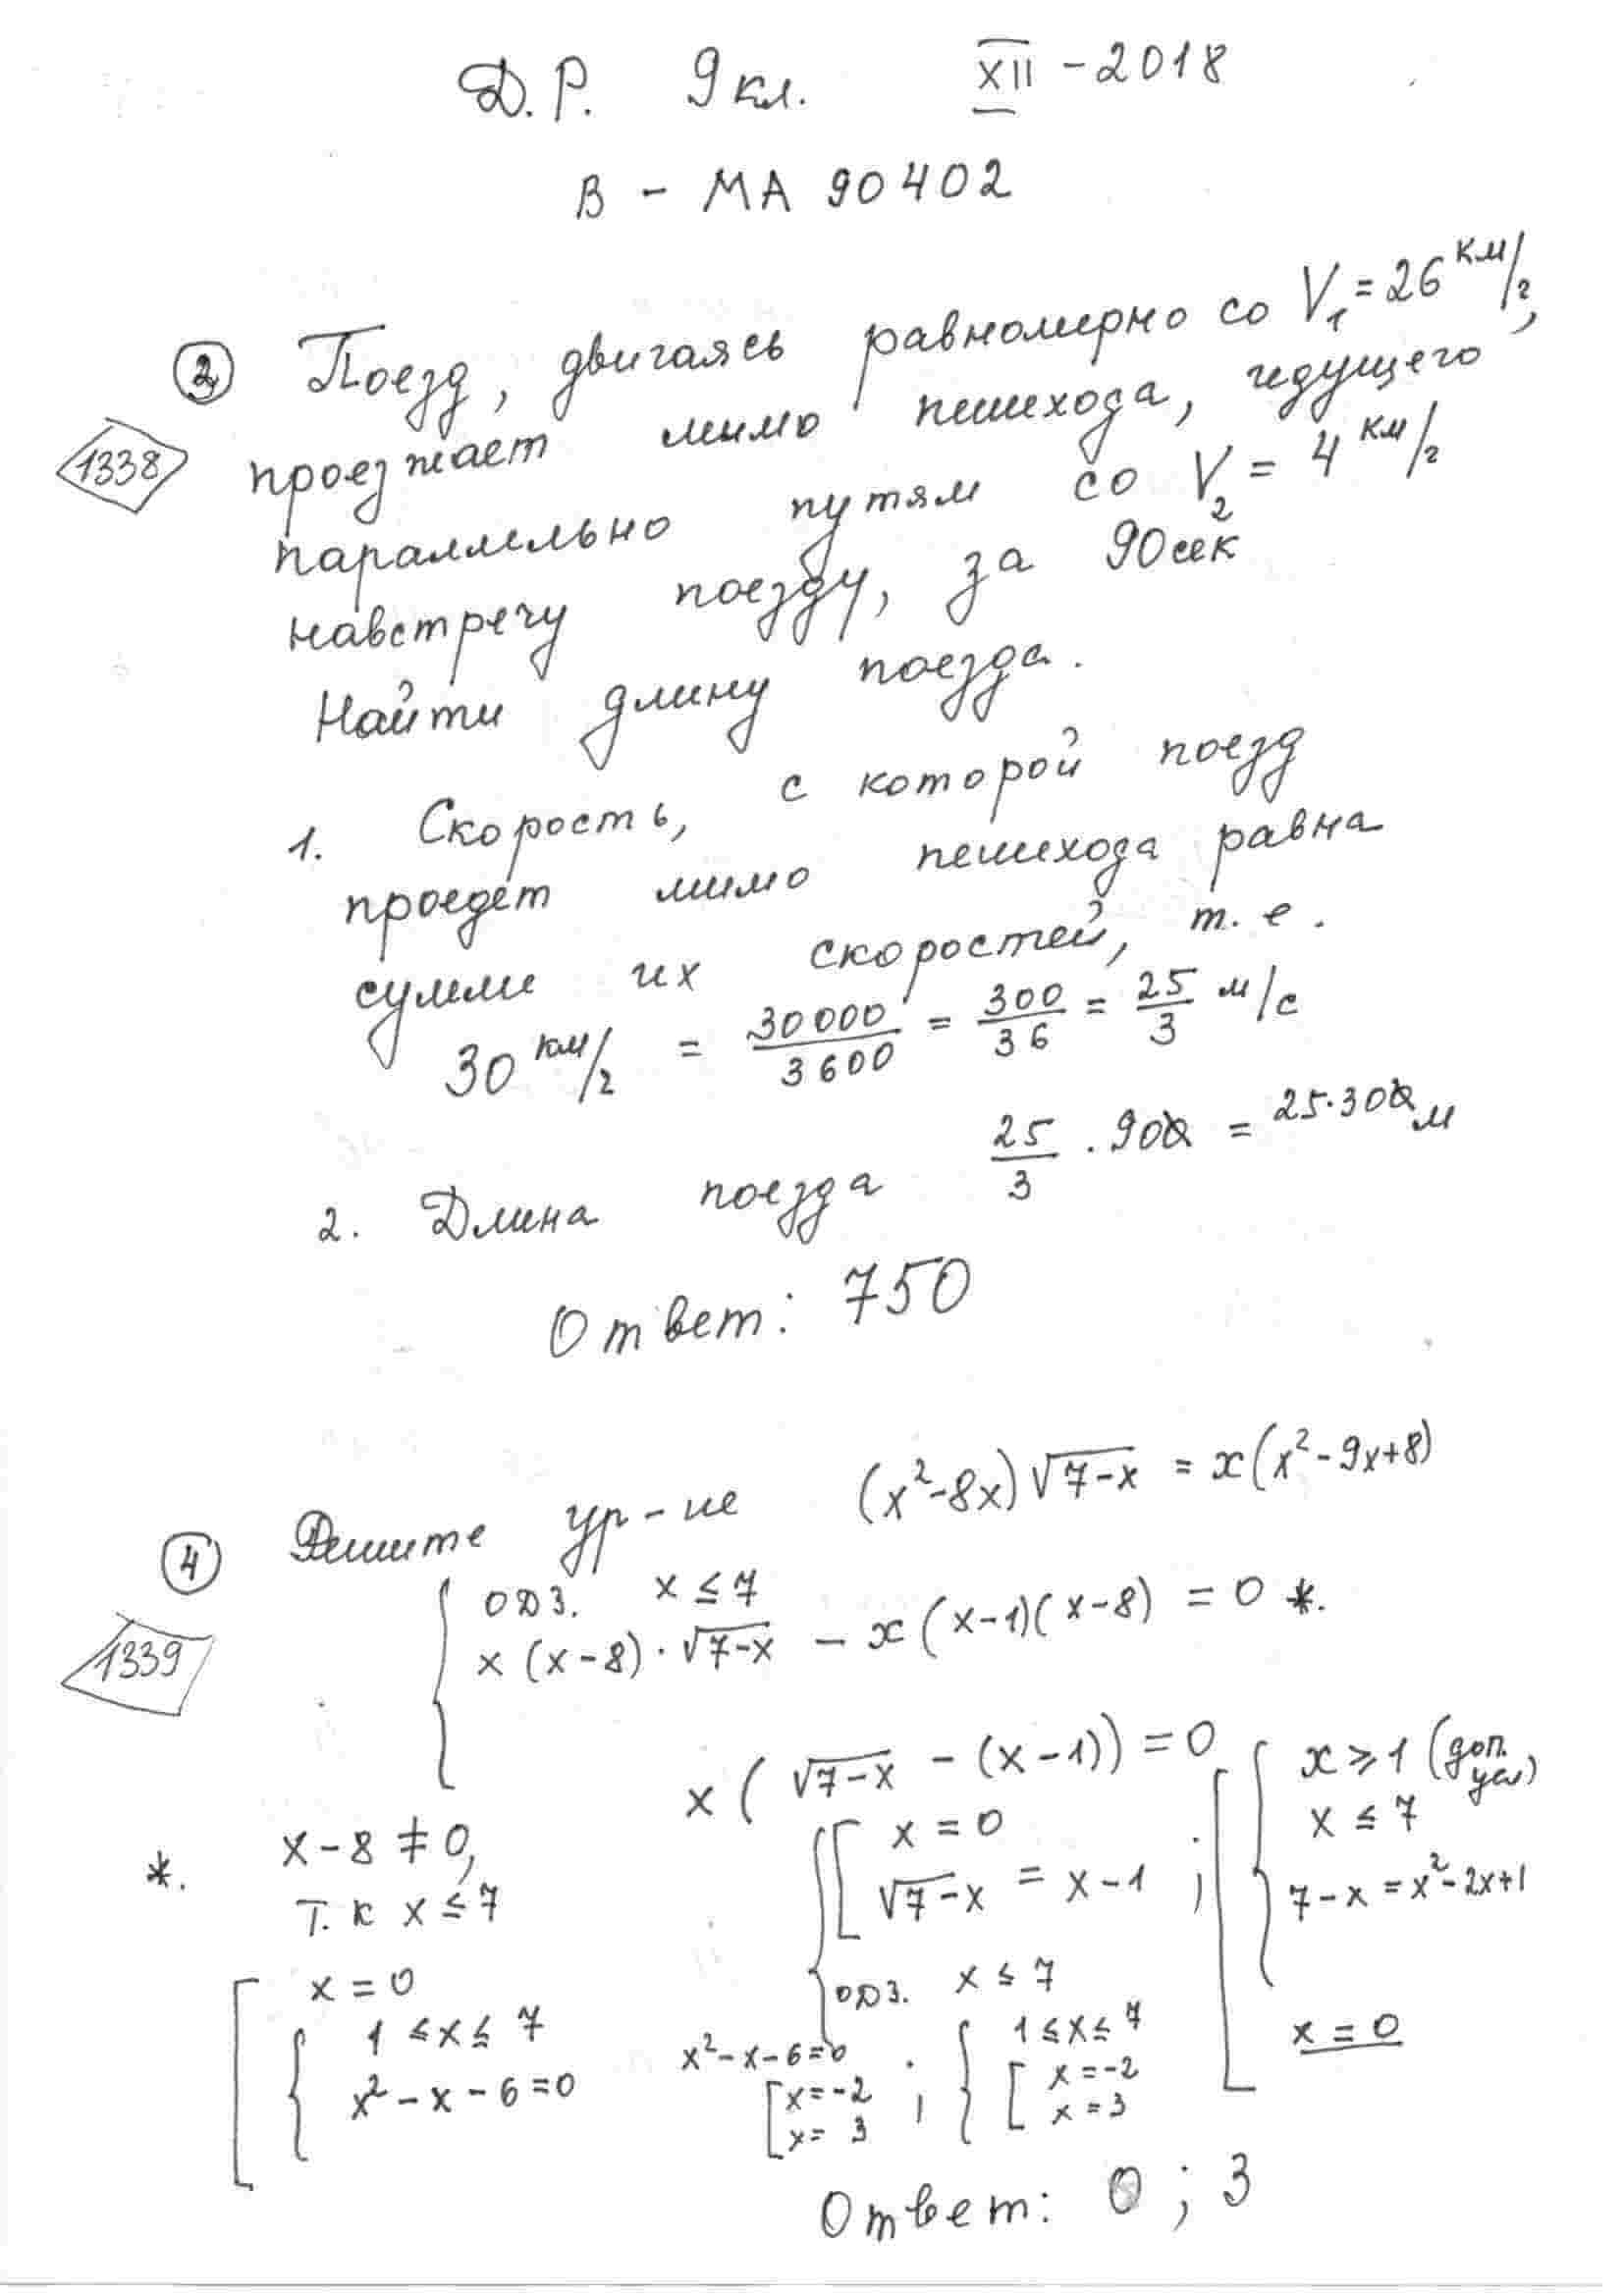 Д.Р. 9кл. XII - 2018
В - МА 90402
② Поезд, двигаясь равномерно со V₁ = 26 км/г,
1338 проезжает мимо пешехода, идущего
параллельно путям со V₂ = 4 км/г
навстречу поезду, за 90сек
Найти длину поезда.
1. Скорость, с которой поезд
проедет мимо пешехода равна
сумме их скоростей, т.е.
30 км/г = 30000/3600 = 300/36 = 25/3 м/с
2. Длина поезда 25/3 · 90 = 25·30 м
Ответ: 750
④ Решите ур-ие (x²-8x)√(7-x) = x(x²-9x+8)
1339 ОДЗ. x ≤ 7
x (x-8)·√(7-x) - x(x-1)(x-8) = 0 *.
x ( √(7-x) - (x-1)) = 0
*. x-8 ≠ 0,
т.к x ≤ 7
[ x = 0
√(7-x) = x-1 ;
ОДЗ. x ≤ 7
[ { x ≥ 1 (доп. усл)
x ≤ 7
7-x = x²-2x+1
x = 0
[ x = 0
{ 1 ≤ x ≤ 7
x² - x - 6 = 0
x²-x-6=0
[ x=-2
x= 3 ;
{ 1 ≤ x ≤ 7
[ x = -2
x = 3
Ответ: 0 ; 3